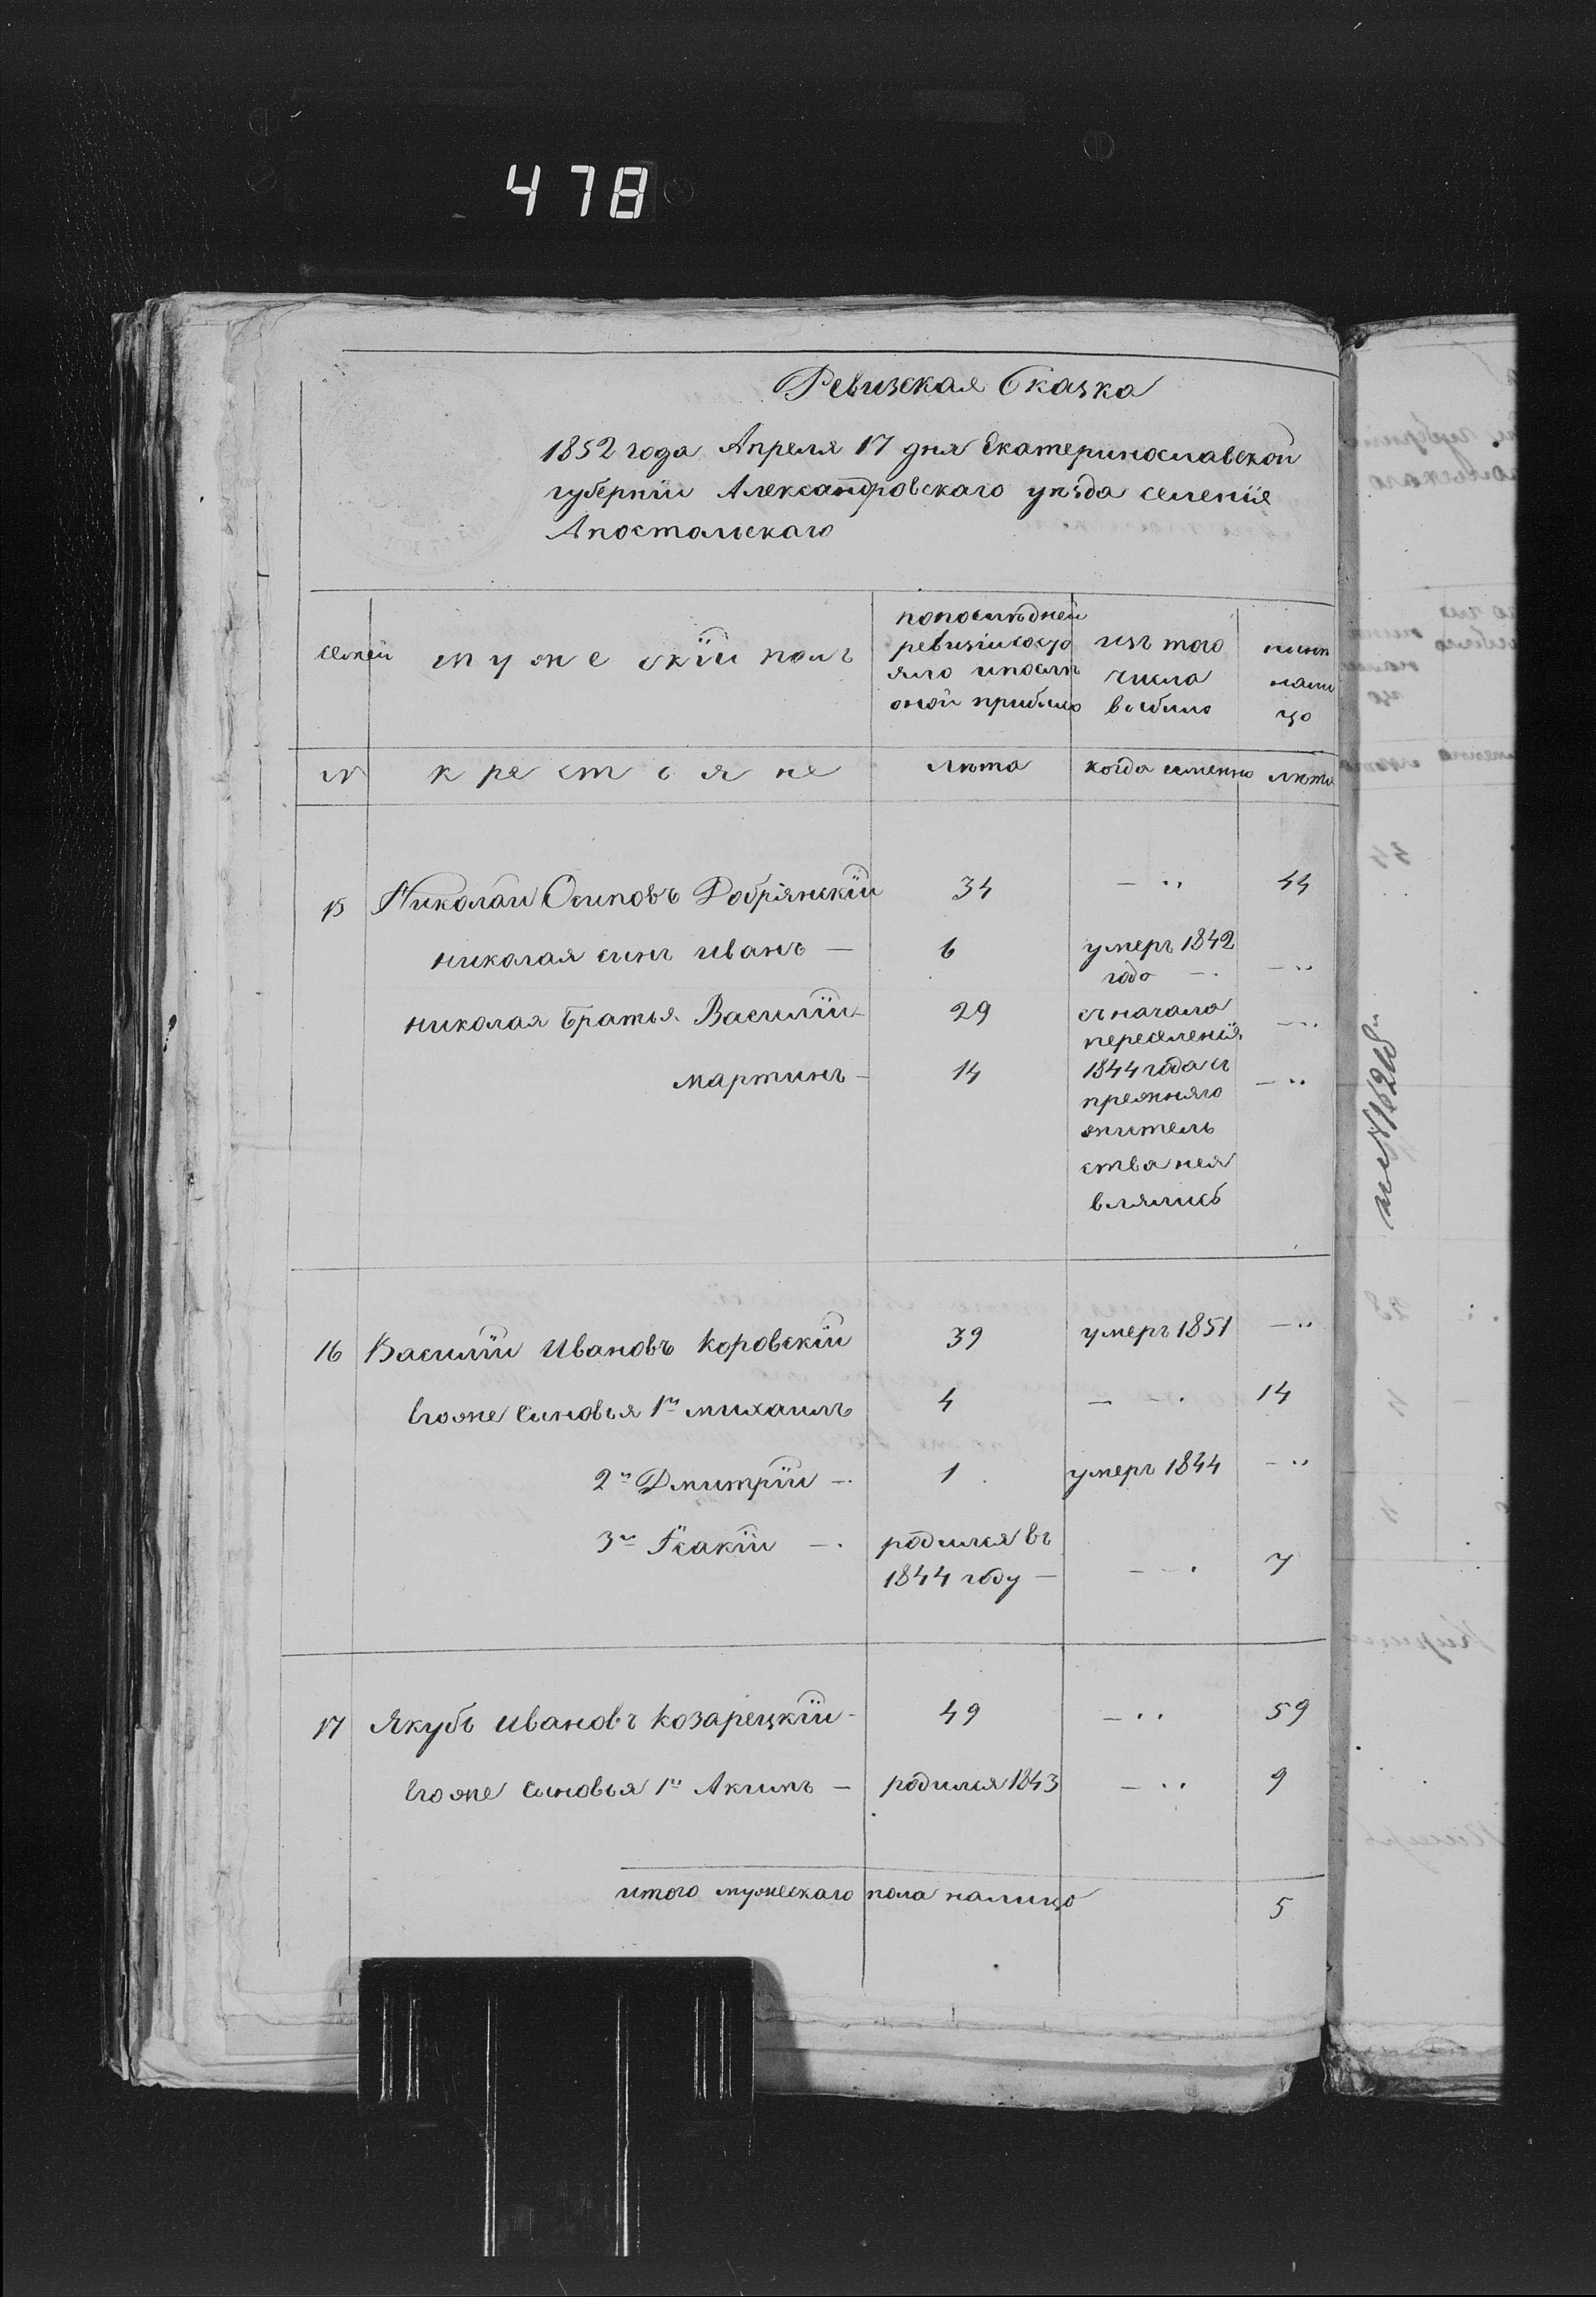 478
Ревизская Сказка
1852 года Апреля 17 дня Екатеринославской
губернїи Александровскаго уѣзда селенїя
Апостольскаго
семей
мужескїй полъ
попослѣдней
ревизіи состо
яло ипослѣ
оной прибыло
изъ того
числа
выбыло
нынѣ
нали
цо
№
крестьяне
лѣта
когда именно
лѣта
15 Николай Осиповъ Добрянскїй 34 — ·· 44
николая сынъ иванъ — 6 умеръ 1842
года — · — ··
николая братья Василїй — 29 съ начала
переселенїя — ··
мартинъ — 14 1844 года съ — ··
прежняго
житель
ства нея
влялись
16 Василїй Ивановъ Коровскїй 39 умеръ 1851 — ··
Егоже Сыновья 1й михаилъ 4 — — · 14
2й Дмитрїй — · 1 умеръ 1844 — ··
3й Їсакїй — · родился въ
1844 году — — — · 7
17 Якубъ ивановъ Козарецкїй — 49 — ·· 59
Егоже Сыновья 1й Акимъ — родился 1843 — ·· 9
итого мужескаго пола налицо 5